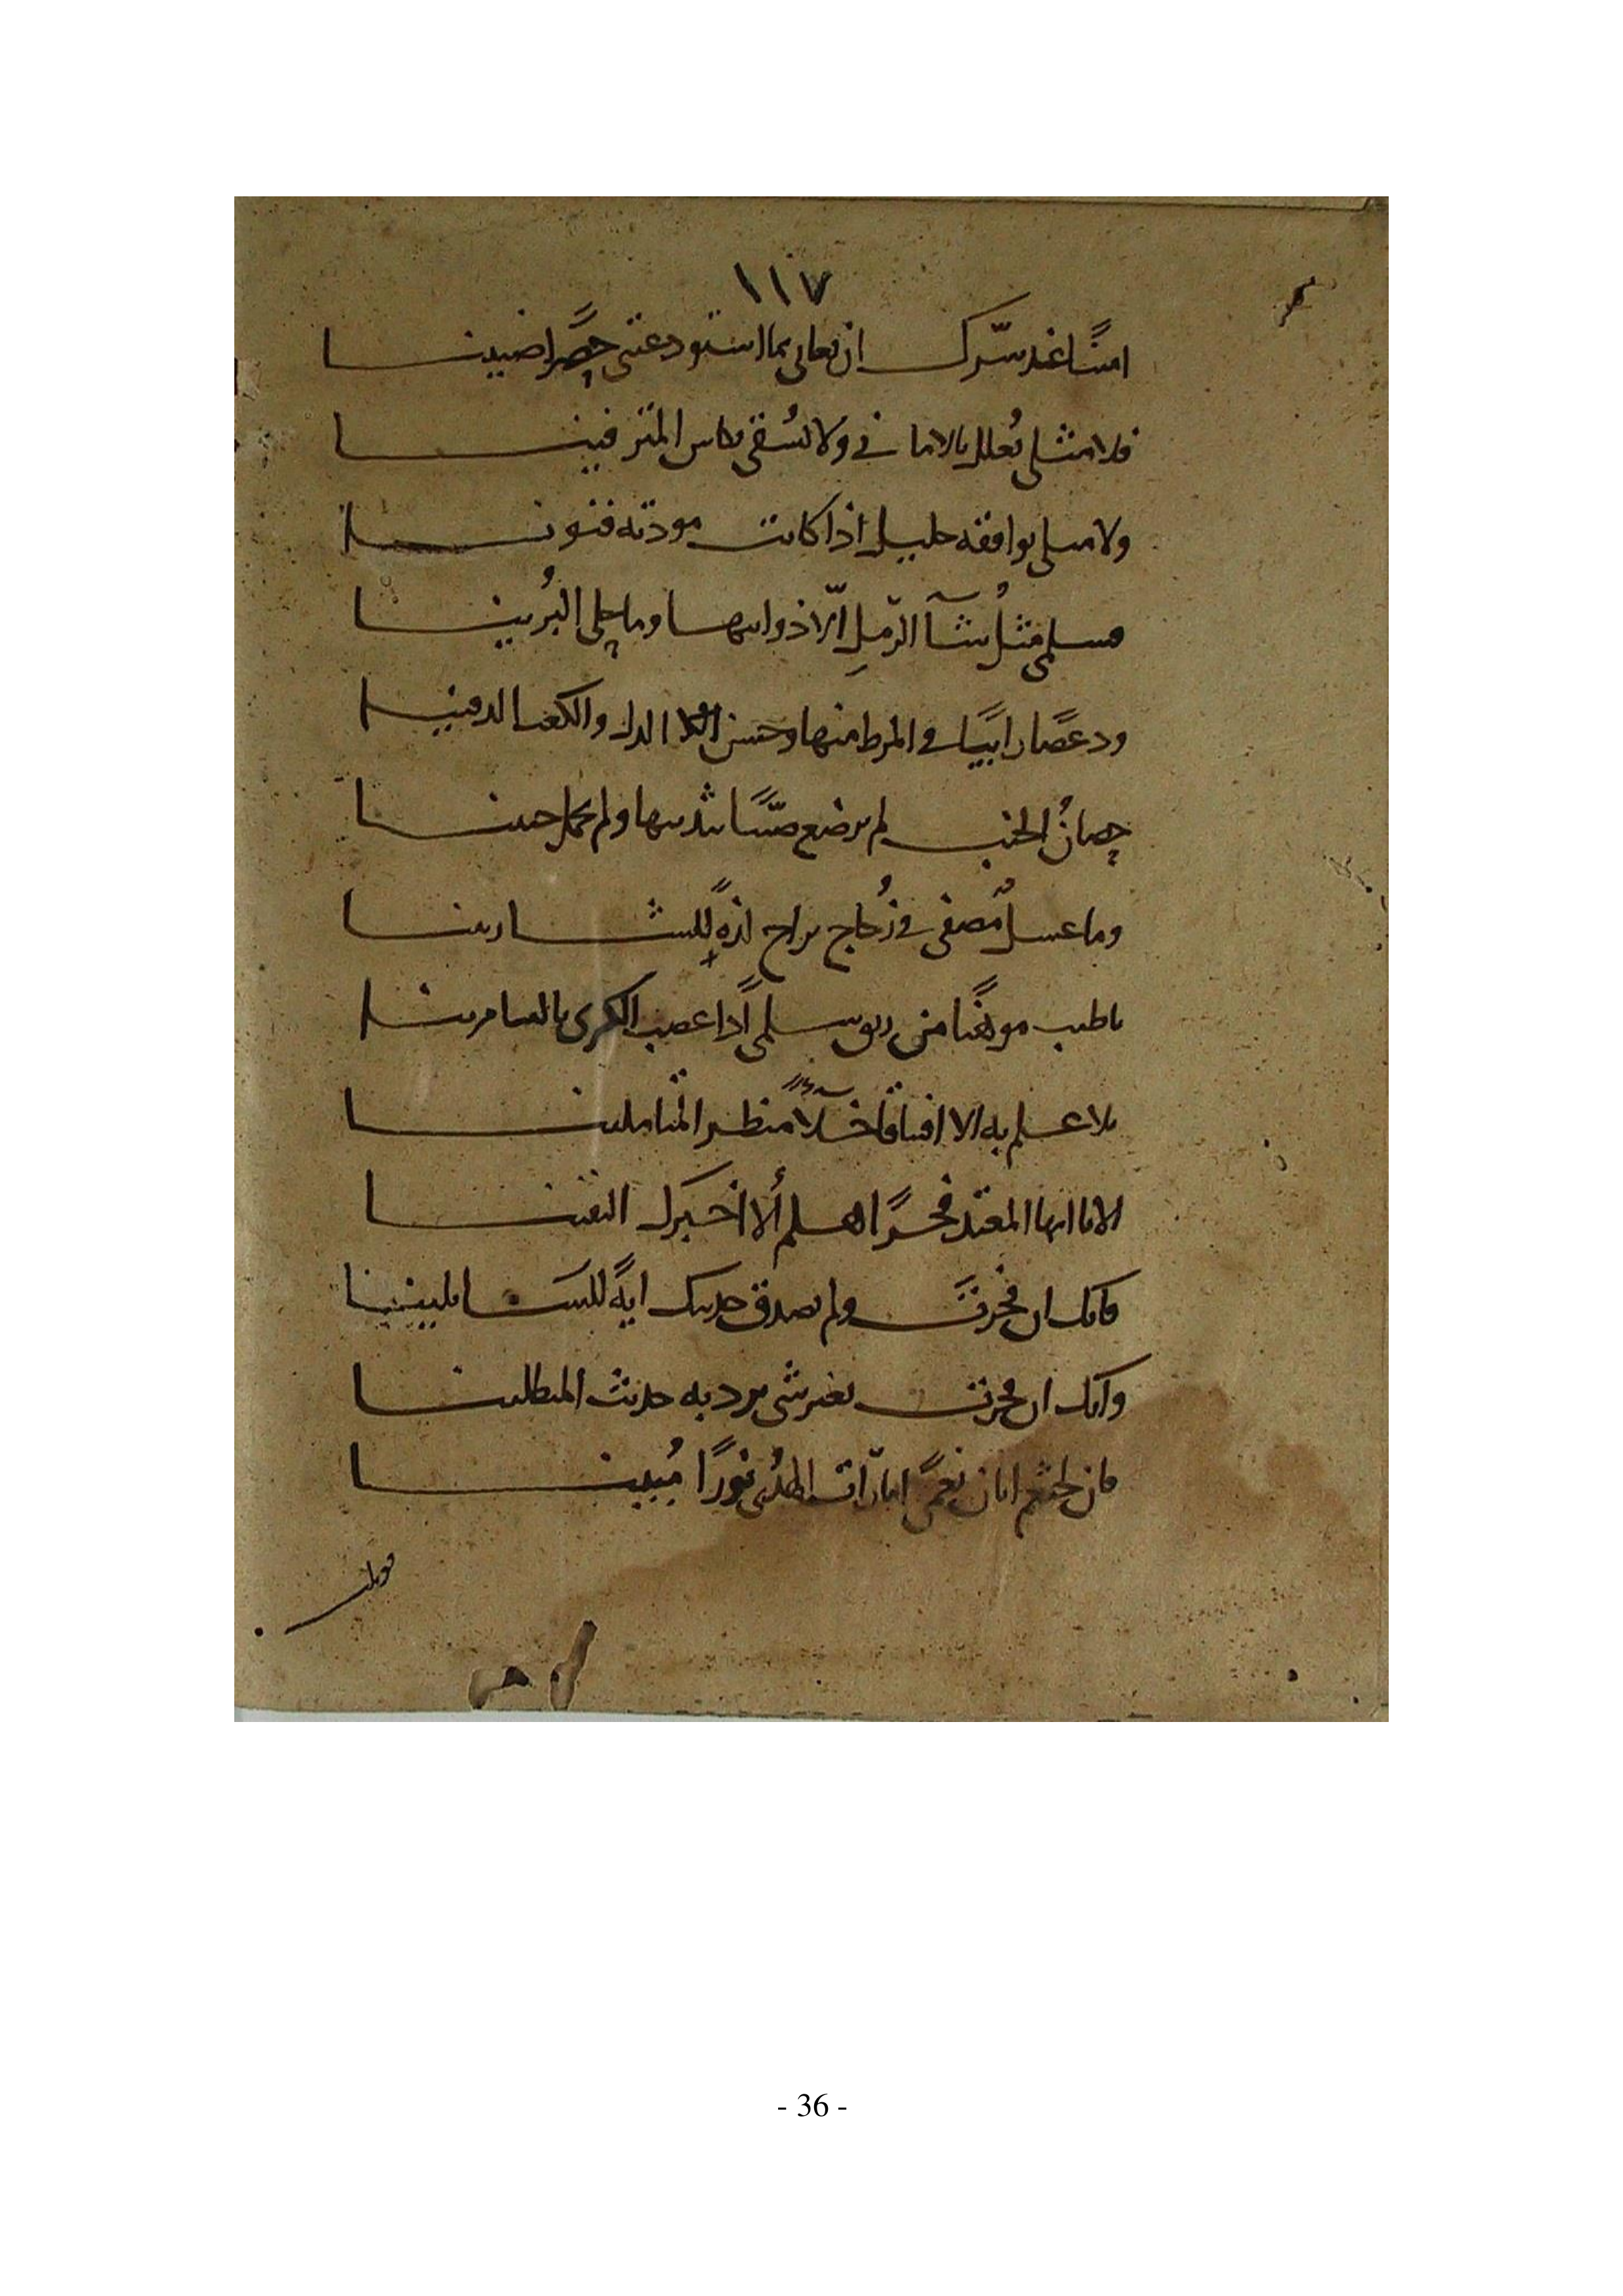 ١١٧
امينًا عند سرّك ان تعالى بما استودعتنى حصرًا ضنينا
فلا مثلى يُعلل بالامانى ولا يُسقى بكاس المترفينا
ولا مثلى يوافقه خليل اذا كانت مودته فنونا
وسلمى مثلُ شآة الرّملِ الّا ذوايبها وما حلى البُرينا
ودعصًا رابيًا فى المرط منها وحسن الدل والكعب الدفينا
حصانُ الجيب لم ترضع صبيًّا بثدييها ولم تحمل جنينا
وما عسلٌ مُصفى فى زُجاج براح لذةٍ للشاربينا
باطيب موهنًا من ريق سلمى اذا عصب الكرى بالسامرينا
بلا علم به الا افتياقًا خلاًلا منظر المتاملينا
الا يا ايها المعتد فخرًا هلم ألا اخبرك اليقينا
فانك ان فخرتَ ولم يصدق حديثك ايةً للسَايلينا
وانك ان فخرت بغير شى يرد به حديث المبطلينا
فان لخثعم ايات نعمًى امارات الهُدى نورًا مُبينا
- 36 -